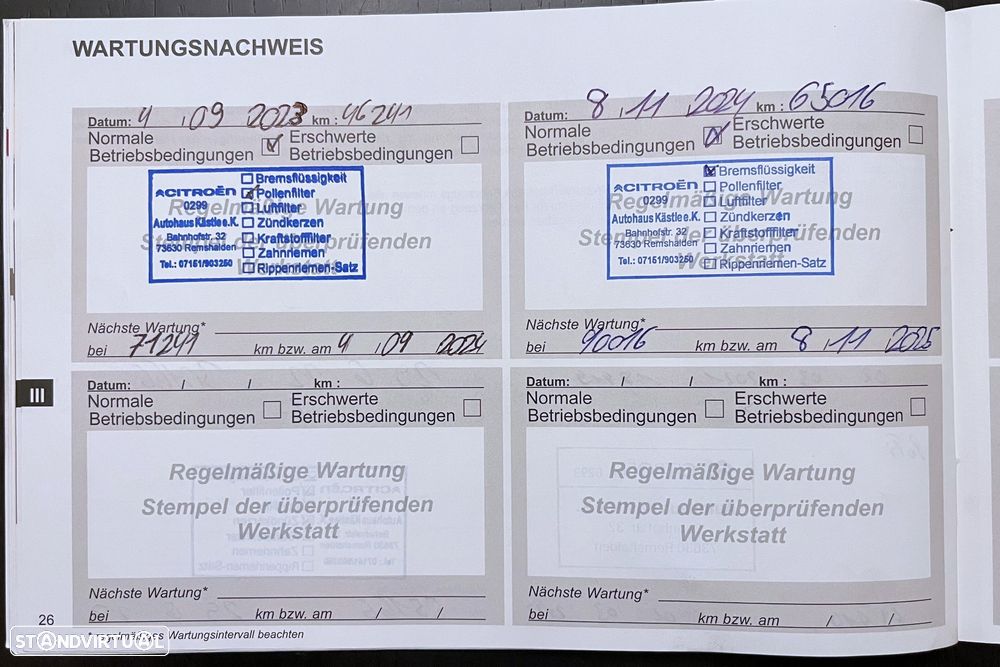 WARTUNGSNACHWEIS
Datum: 4 . 09 . 2023 km : 46241
Normale Betriebsbedingungen
Erschwerte Betriebsbedingungen
Regelmäßige Wartung
Stempel der überprüfenden
Werkstatt
CITROËN
0299
Autohaus Kästle e.K.
Bahnhofstr. 32
73630 Remshalden
Tel.: 07151/903250
Bremsflüssigkeit
Pollenfilter
Luftfilter
Zündkerzen
Kraftstofffilter
Zahnriemen
Rippenriemen-Satz
Nächste Wartung*
bei 71241 km bzw. am 4 . 09 . 2024
Datum: 8 . 11 . 2024 km : 65016
Normale Betriebsbedingungen
Erschwerte Betriebsbedingungen
Regelmäßige Wartung
Stempel der überprüfenden
Werkstatt
CITROËN
0299
Autohaus Kästle e.K.
Bahnhofstr. 32
73630 Remshalden
Tel.: 07151/903250
Bremsflüssigkeit
Pollenfilter
Luftfilter
Zündkerzen
Kraftstofffilter
Zahnriemen
Rippenriemen-Satz
Nächste Wartung*
bei 90016 km bzw. am 8 . 11 . 2025
III
Datum: / / km :
Normale Betriebsbedingungen
Erschwerte Betriebsbedingungen
Regelmäßige Wartung
Stempel der überprüfenden
Werkstatt
Nächste Wartung*
bei km bzw. am / /
Datum: / / km :
Normale Betriebsbedingungen
Erschwerte Betriebsbedingungen
Regelmäßige Wartung
Stempel der überprüfenden
Werkstatt
Nächste Wartung*
bei km bzw. am / /
26
* regelmäßiges Wartungsintervall beachten
STANDVIRTUAL